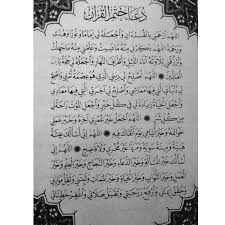 دُعَاءُ خَتْمِ الْقُرْآنِ
اللَّهُمَّ ارْحَمْنِي بِالْقُرْءَانِ وَاجْعَلْهُ لِي إِمَامًا وَنُورًا وَهُدًى
وَرَحْمَةً اللَّهُمَّ ذَكِّرْنِي مِنْهُ مَا نَسِيتُ وَعَلِّمْنِي مِنْهُ مَا جَهِلْتُ
وَارْزُقْنِي تِلَاوَتَهُ آنَاءَ اللَّيْلِ وَأَطْرَافَ النَّهَارِ وَاجْعَلْهُ لِي حُجَّةً يَا رَبَّ
الْعَالَمِينَ * اللَّهُمَّ أَصْلِحْ لِي دِينِي الَّذِي هُوَ عِصْمَةُ أَمْرِي وَأَصْلِحْ
لِي دُنْيَايَ الَّتِي فِيهَا مَعَاشِي وَأَصْلِحْ لِي آخِرَتِي الَّتِي فِيهَا مَعَادِي
وَاجْعَلِ الْحَيَاةَ زِيَادَةً لِي فِي كُلِّ خَيْرٍ وَاجْعَلِ الْمَوْتَ رَاحَةً لِي
مِنْ كُلِّ شَرٍّ * اللَّهُمَّ اجْعَلْ خَيْرَ عُمْرِي آخِرَهُ وَخَيْرَ عَمَلِي
خَوَاتِمَهُ وَخَيْرَ أَيَّامِي يَوْمَ أَلْقَاكَ فِيهِ * اللَّهُمَّ إِنِّي أَسْأَلُكَ عِيشَةً
هَنِيَّةً وَمِيتَةً سَوِيَّةً وَمَرَدًّا غَيْرَ مُخْزٍ وَلَا فَاضِحٍ * اللَّهُمَّ
إِنِّي أَسْأَلُكَ خَيْرَ الْمَسْأَلَةِ وَخَيْرَ الدُّعَاءِ وَخَيْرَ النَّجَاحِ وَخَيْرَ الْعِلْمِ
وَخَيْرَ الْعَمَلِ وَخَيْرَ الثَّوَابِ وَخَيْرَ الْحَيَاةِ وَخَيْرَ الْمَمَاتِ وَثَبِّتْنِي وَثَقِّلْ مَوَازِينِي
وَحَقِّقْ إِيمَانِي وَارْفَعْ دَرَجَتِي وَتَقَبَّلْ صَلَاتِي وَاغْفِرْ خَطِيئَاتِي